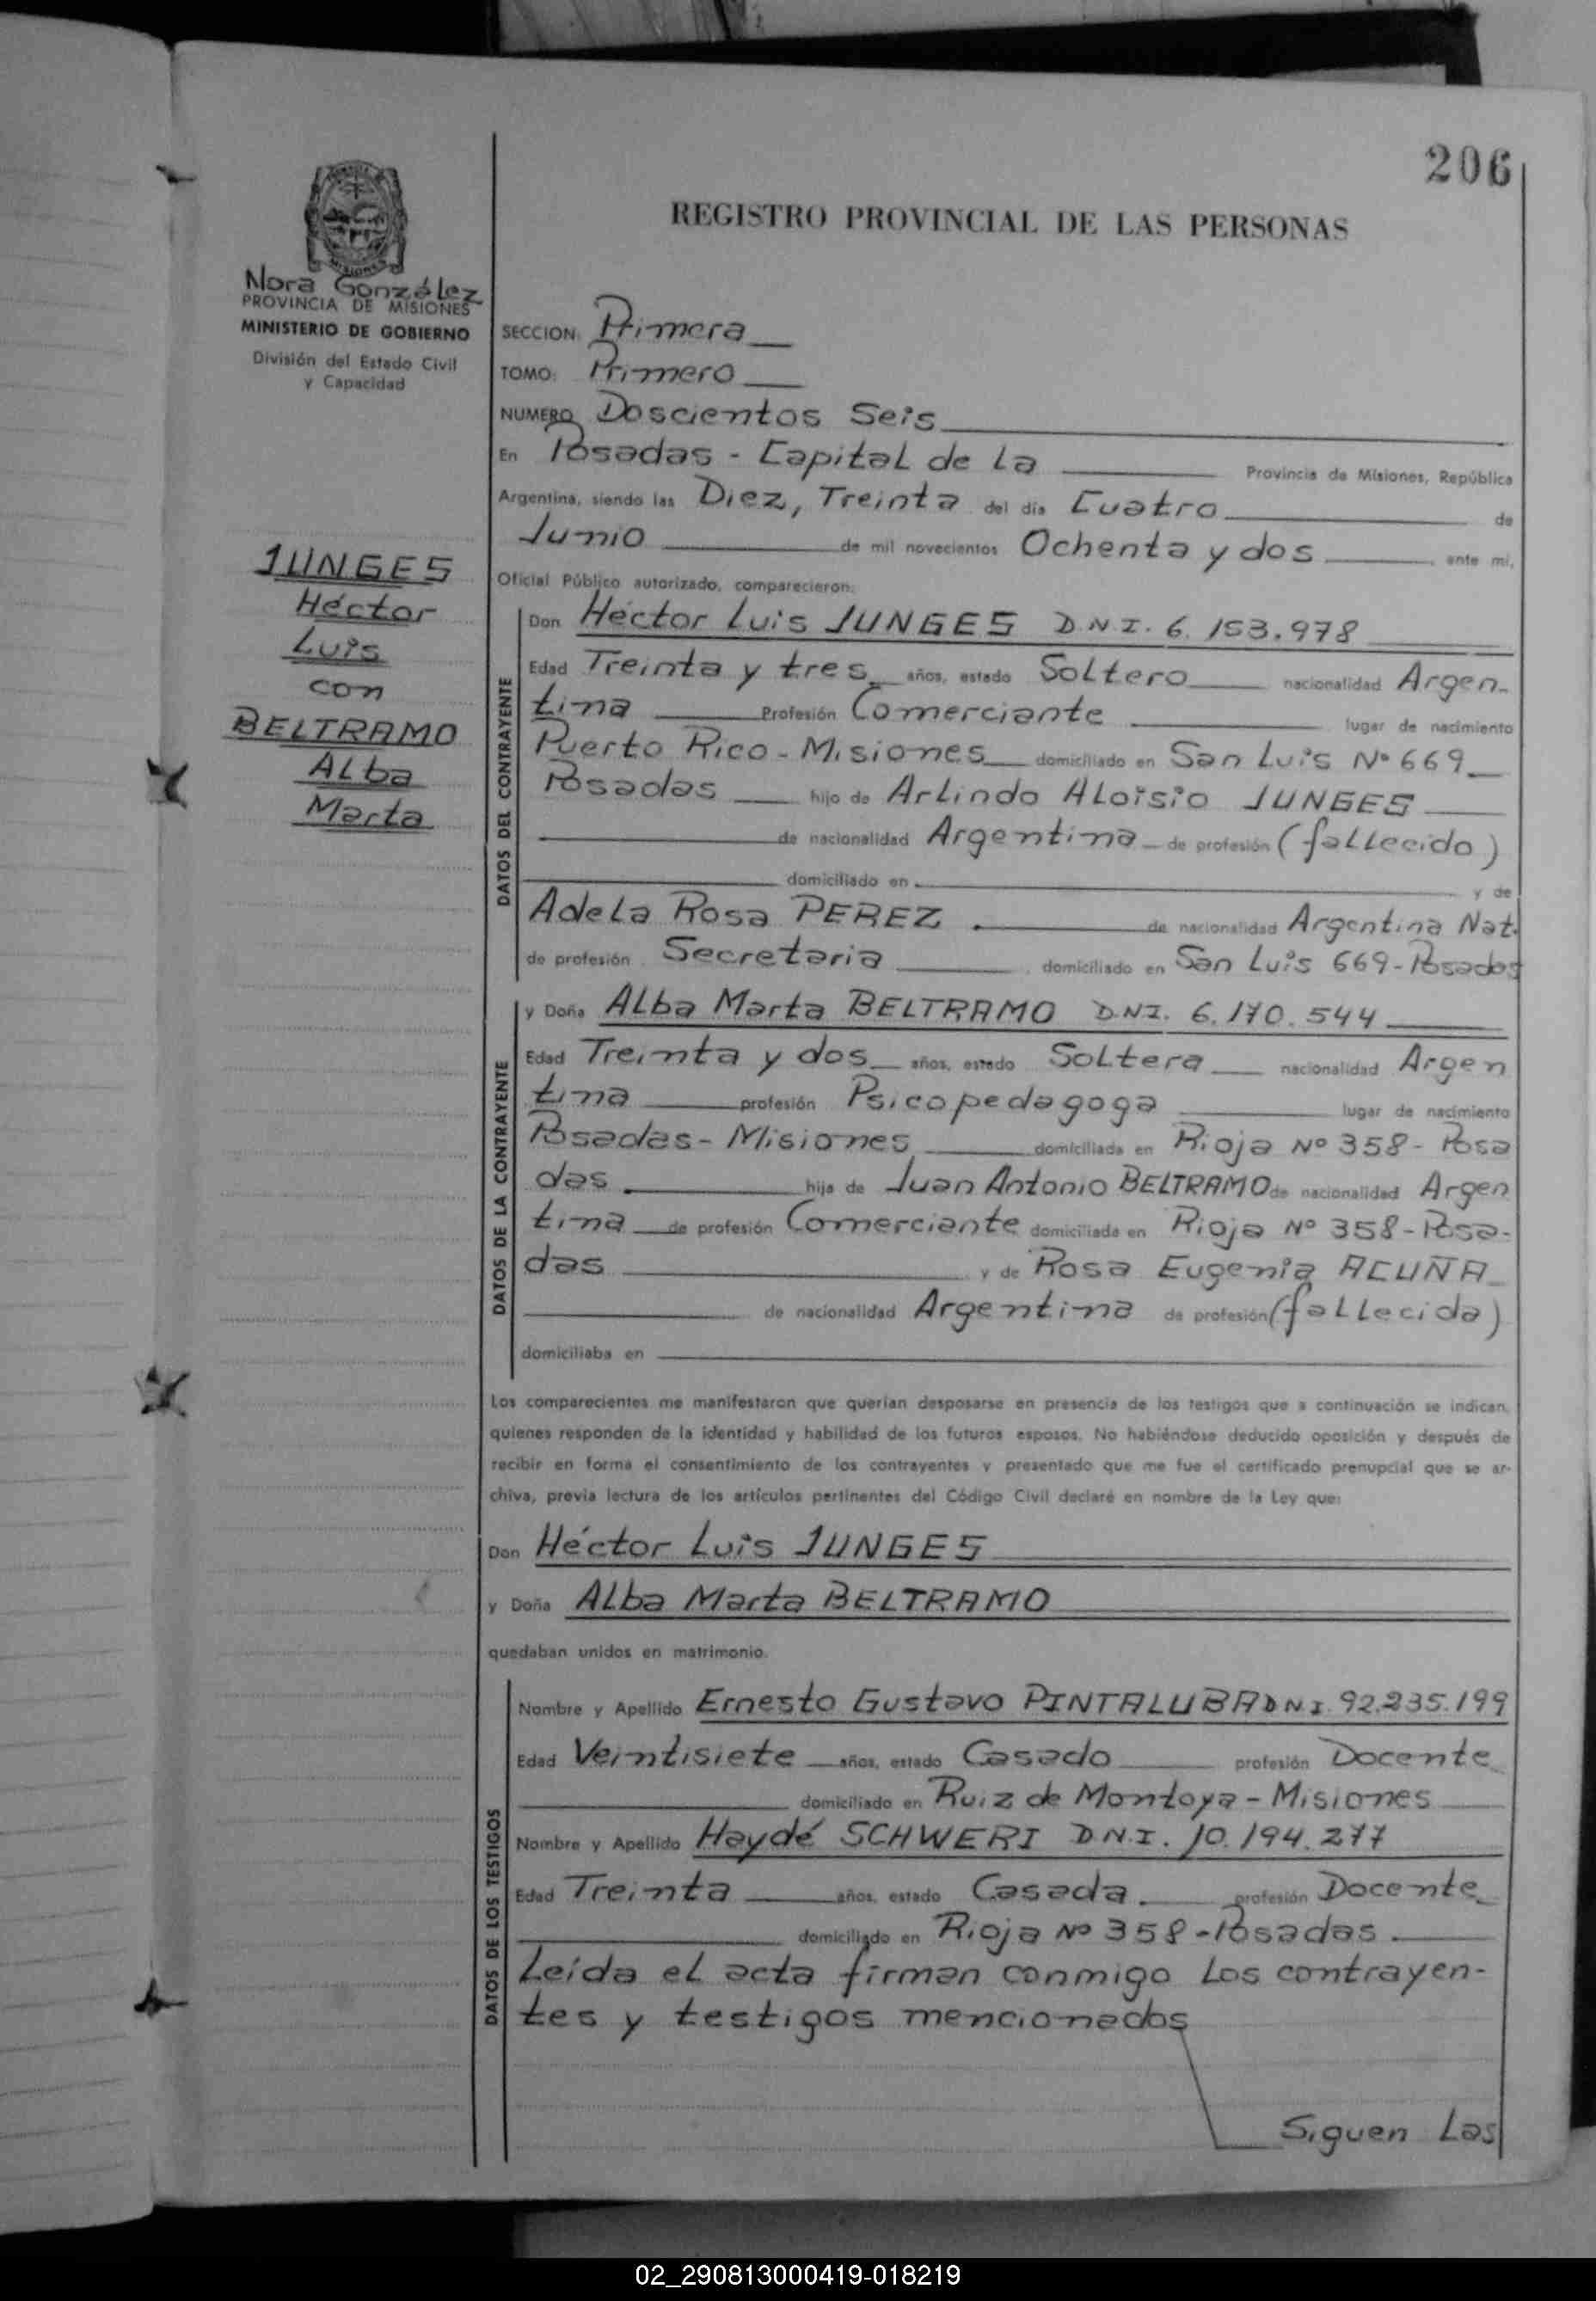 206
REGISTRO PROVINCIAL DE LAS PERSONAS
MISIONES
Nora González
PROVINCIA DE MISIONES
MINISTERIO DE GOBIERNO
División del Estado Civil
y Capacidad
JUNGES
Héctor
Luis
con
BELTRAMO
Alba
Marta
SECCION: Primera
TOMO: Primero
NUMERO Doscientos Seis
En Posadas - Capital de La Provincia de Misiones, República
Argentina, siendo las Diez, Treinta del día Cuatro de
Junio de mil novecientos Ochenta y dos ante mi,
Oficial Público autorizado, comparecieron:
DATOS DEL CONTRAYENTE
Don Héctor Luis JUNGES D.N.I. 6.153.978
Edad Treinta y tres años, estado Soltero nacionalidad Argen-
tina Profesión Comerciante lugar de nacimiento
Puerto Rico - Misiones domiciliado en San Luis Nº 669
Posadas hijo de Arlindo Aloisio JUNGES
de nacionalidad Argentina de profesión (fallecido)
domiciliado en y de
Adela Rosa PEREZ de nacionalidad Argentina Nat.
de profesión Secretaria domiciliado en San Luis 669-Posadas
DATOS DE LA CONTRAYENTE
y Doña Alba Marta BELTRAMO D.N.I. 6.170.544
Edad Treinta y dos años, estado Soltera nacionalidad Argen
tina profesión Psicopedagoga lugar de nacimiento
Posadas - Misiones domiciliada en Rioja Nº 358 - Posa
das hija de Juan Antonio BELTRAMO de nacionalidad Argen
tina de profesión Comerciante domiciliada en Rioja Nº 358-Posa-
das y de Rosa Eugenia ACUÑA
de nacionalidad Argentina de profesión (fallecida)
domiciliaba en
Los comparecientes me manifestaron que querían desposarse en presencia de los testigos que a continuación se indican,
quienes responden de la identidad y habilidad de los futuros esposos. No habiéndose deducido oposición y después de
recibir en forma el consentimiento de los contrayentes y presentado que me fue el certificado prenupcial que se ar-
chiva, previa lectura de los artículos pertinentes del Código Civil declaré en nombre de la Ley que:
Don Héctor Luis JUNGES
y Doña Alba Marta BELTRAMO
quedaban unidos en matrimonio.
DATOS DE LOS TESTIGOS
Nombre y Apellido Ernesto Gustavo PINTALUBA D.N.I. 92.235.199
Edad Veintisiete años, estado Casado profesión Docente
domiciliado en Ruiz de Montoya - Misiones
Nombre y Apellido Haydé SCHWERI D.N.I. 10.194.277
Edad Treinta años, estado Casada profesión Docente
domiciliado en Rioja Nº 358-Posadas
Leída el acta firman conmigo los contrayen-
tes y testigos mencionados
Siguen Las
02_290813000419-018219